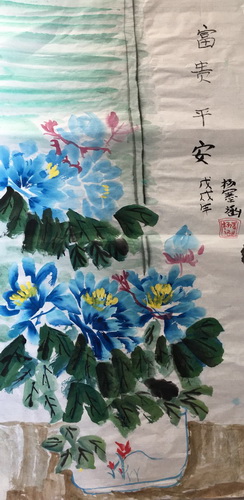 富贵平安
戊戌年